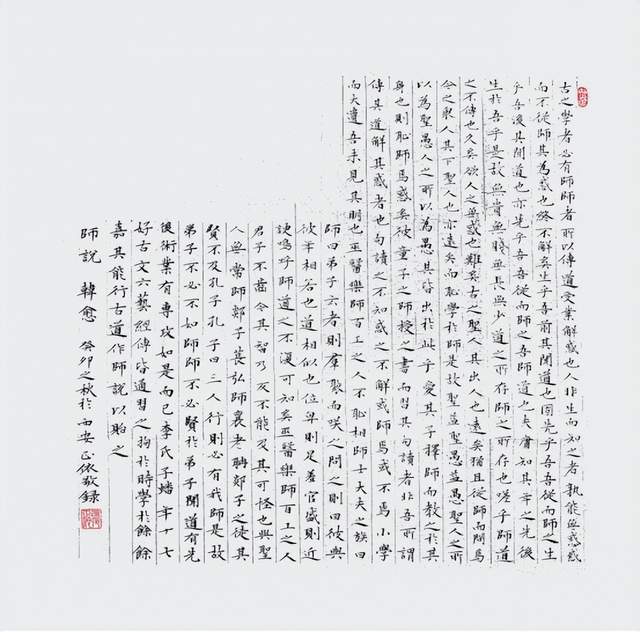 古之學者必有師師者所以傳道受業解惑也人非生而知之者孰能無惑惑
而不從師其為惑也終不解矣生乎吾前其聞道也固先乎吾吾從而師之生
乎吾後其聞道也亦先乎吾吾從而師之吾師道也夫庸知其年之先後
生於吾乎是故無貴無賤無長無少道之所存師之所存也嗟乎師道
之不傳也久矣欲人之無惑也難矣古之聖人其出人也遠矣猶且從師而問焉
今之衆人其下聖人也亦遠矣而恥學於師是故聖益聖愚益愚聖人之所
以為聖愚人之所以為愚其皆出於此乎愛其子擇師而教之於其
身也則恥師焉惑矣彼童子之師授之書而習其句讀者非吾所謂
傳其道解其惑者也句讀之不知惑之不解或師焉或不焉小學
而大遺吾未見其明也巫醫樂師百工之人不恥相師士大夫之族曰
師曰弟子云者則群聚而笑之問之則曰彼與
彼年相若也道相似也位卑則足羞官盛則近
諛嗚呼師道之不復可知矣巫醫樂師百工之人
君子不齒今其智乃反不能及其可怪也與聖
人無常師郯子萇弘師襄老聃郯子之徒其
賢不及孔子孔子曰三人行則必有我師是故
弟子不必不如師師不必賢於弟子聞道有先
後術業有專攻如是而已李氏子蟠年十七
好古文六藝經傳皆通習之拘於時學於餘餘
嘉其能行古道作師說以貽之
師說 韓愈 癸卯之秋於西安 敬録